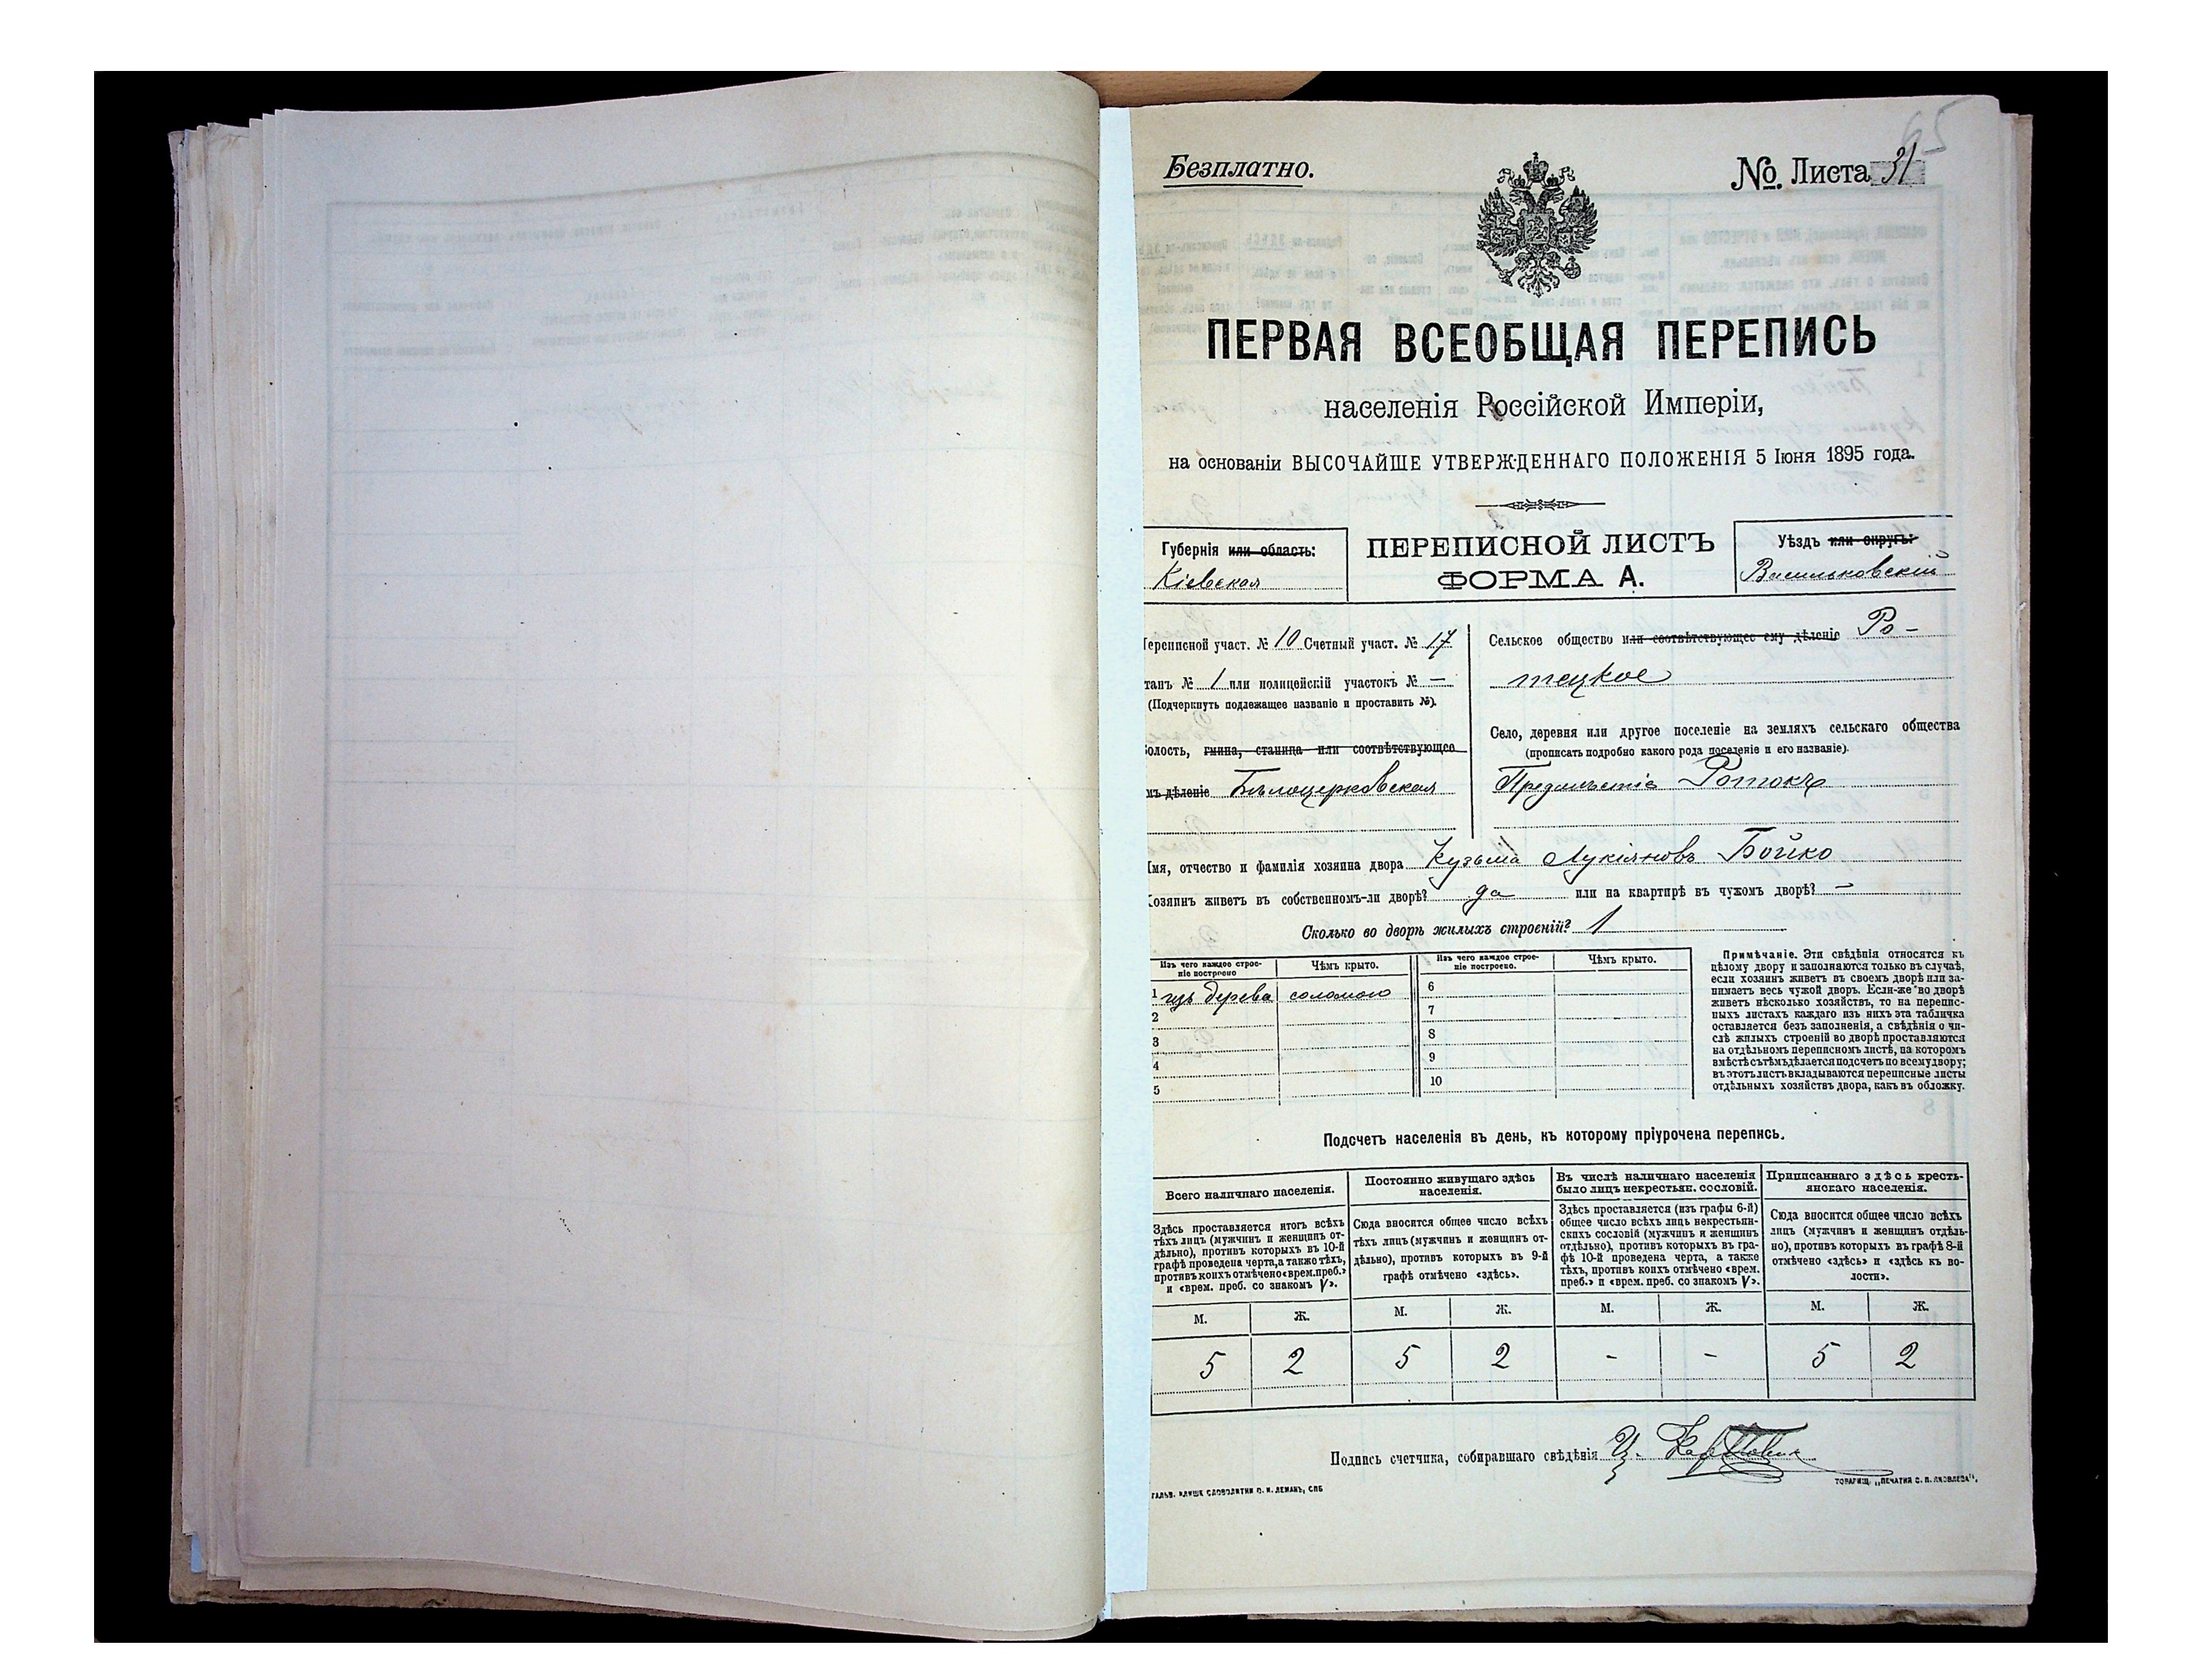 65
Безплатно.
№ Листа 31
ПЕРВАЯ ВСЕОБЩАЯ ПЕРЕПИСЬ
населенія Россійской Имперіи,
на основаніи ВЫСОЧАЙШЕ УТВЕРЖДЕННАГО ПОЛОЖЕНІЯ 5 Іюня 1895 года.
Губернія или область:
Кіевская
ПЕРЕПИСНОЙ ЛИСТЪ
ФОРМА А.
Уѣздъ или округъ:
Васильковскій
Переписной участ. № 10 Счетный участ. № 17
танъ № 1 или полицейскій участокъ № —
(Подчеркнуть подлежащее названіе и проставить №).
олость, гмина, станица или соотвѣтствующее
мъ дѣленіе Бѣлоцерковская
Сельское общество или соотвѣтствующее ему дѣленіе Ро-
тецкое
Село, деревня или другое поселеніе на земляхъ сельскаго общества
(прописать подробно какого рода поселеніе и его названіе).
Предмѣстіе Ротокъ
Имя, отчество и фамилія хозяина двора Кузьма Лукіяновъ Бойко
Хозяинъ живетъ въ собственномъ-ли дворѣ? да или на квартирѣ въ чужомъ дворѣ? —
Сколько во дворѣ жилыхъ строеній? 1
Изъ чего каждое строе-
ніе построено
Чѣмъ крыто.
Изъ чего каждое строе-
ніе построено.
Чѣмъ крыто.
1 изъ дерева соломою
2
3
4
5
6
7
8
9
10
Примѣчаніе. Эти свѣдѣнія относятся къ
цѣлому двору и заполняются только въ случаѣ,
если хозяинъ живетъ въ своемъ дворѣ или за-
нимаетъ весь чужой дворъ. Если-же во дворѣ
живетъ нѣсколько хозяйствъ, то на перепис-
ныхъ листахъ каждаго изъ нихъ эта табличка
оставляется безъ заполненія, а свѣдѣнія о чи-
слѣ жилыхъ строеній во дворѣ проставляются
на отдѣльномъ переписномъ листѣ, на которомъ
вмѣстѣ съ тѣмъ дѣлается подсчетъ по всему двору;
въ этотъ листъ вкладываются переписные листы
отдѣльныхъ хозяйствъ двора, какъ въ обложку.
Подсчетъ населенія въ день, къ которому пріурочена перепись.
Всего наличнаго населенія.
Здѣсь проставляется итогъ всѣхъ
тѣхъ лицъ (мужчинъ и женщинъ от-
дѣльно), противъ которыхъ въ 10-й
графѣ проведена черта, а также тѣхъ,
противъ коихъ отмѣчено «врем. преб.»
и «врем. преб. со знакомъ V».
Постоянно живущаго здѣсь
населенія.
Сюда вносится общее число всѣхъ
тѣхъ лицъ (мужчинъ и женщинъ от-
дѣльно), противъ которыхъ въ 9-й
графѣ отмѣчено «здѣсь».
Въ числѣ наличнаго населенія
было лицъ некрестьян. сословій.
Здѣсь проставляется (изъ графы 6-й)
общее число всѣхъ лицъ некрестьян-
скихъ сословій (мужчинъ и женщинъ
отдѣльно), противъ которыхъ въ гра-
фѣ 10-й проведена черта, а также
тѣхъ, противъ коихъ отмѣчено «врем.
преб.» и «врем. преб. со знакомъ V».
Приписаннаго здѣсь кресть-
янскаго населенія.
Сюда вносится общее число всѣхъ
лицъ (мужчинъ и женщинъ отдѣль-
но), противъ которыхъ въ графѣ 8-й
отмѣчено «здѣсь» и «здѣсь къ во-
лости».
М. Ж. М. Ж. М. Ж. М. Ж.
5 2 5 2 - - 5 2
Подпись счетчика, собиравшаго свѣдѣнія
ГАЛЬВ. КЛИШЕ СЛОВОЛИТНИ О. И. ЛЕМАНЪ, СПБ
ТОВАРИЩ. „ПЕЧАТНЯ С. П. ЯКОВЛЕВА“,